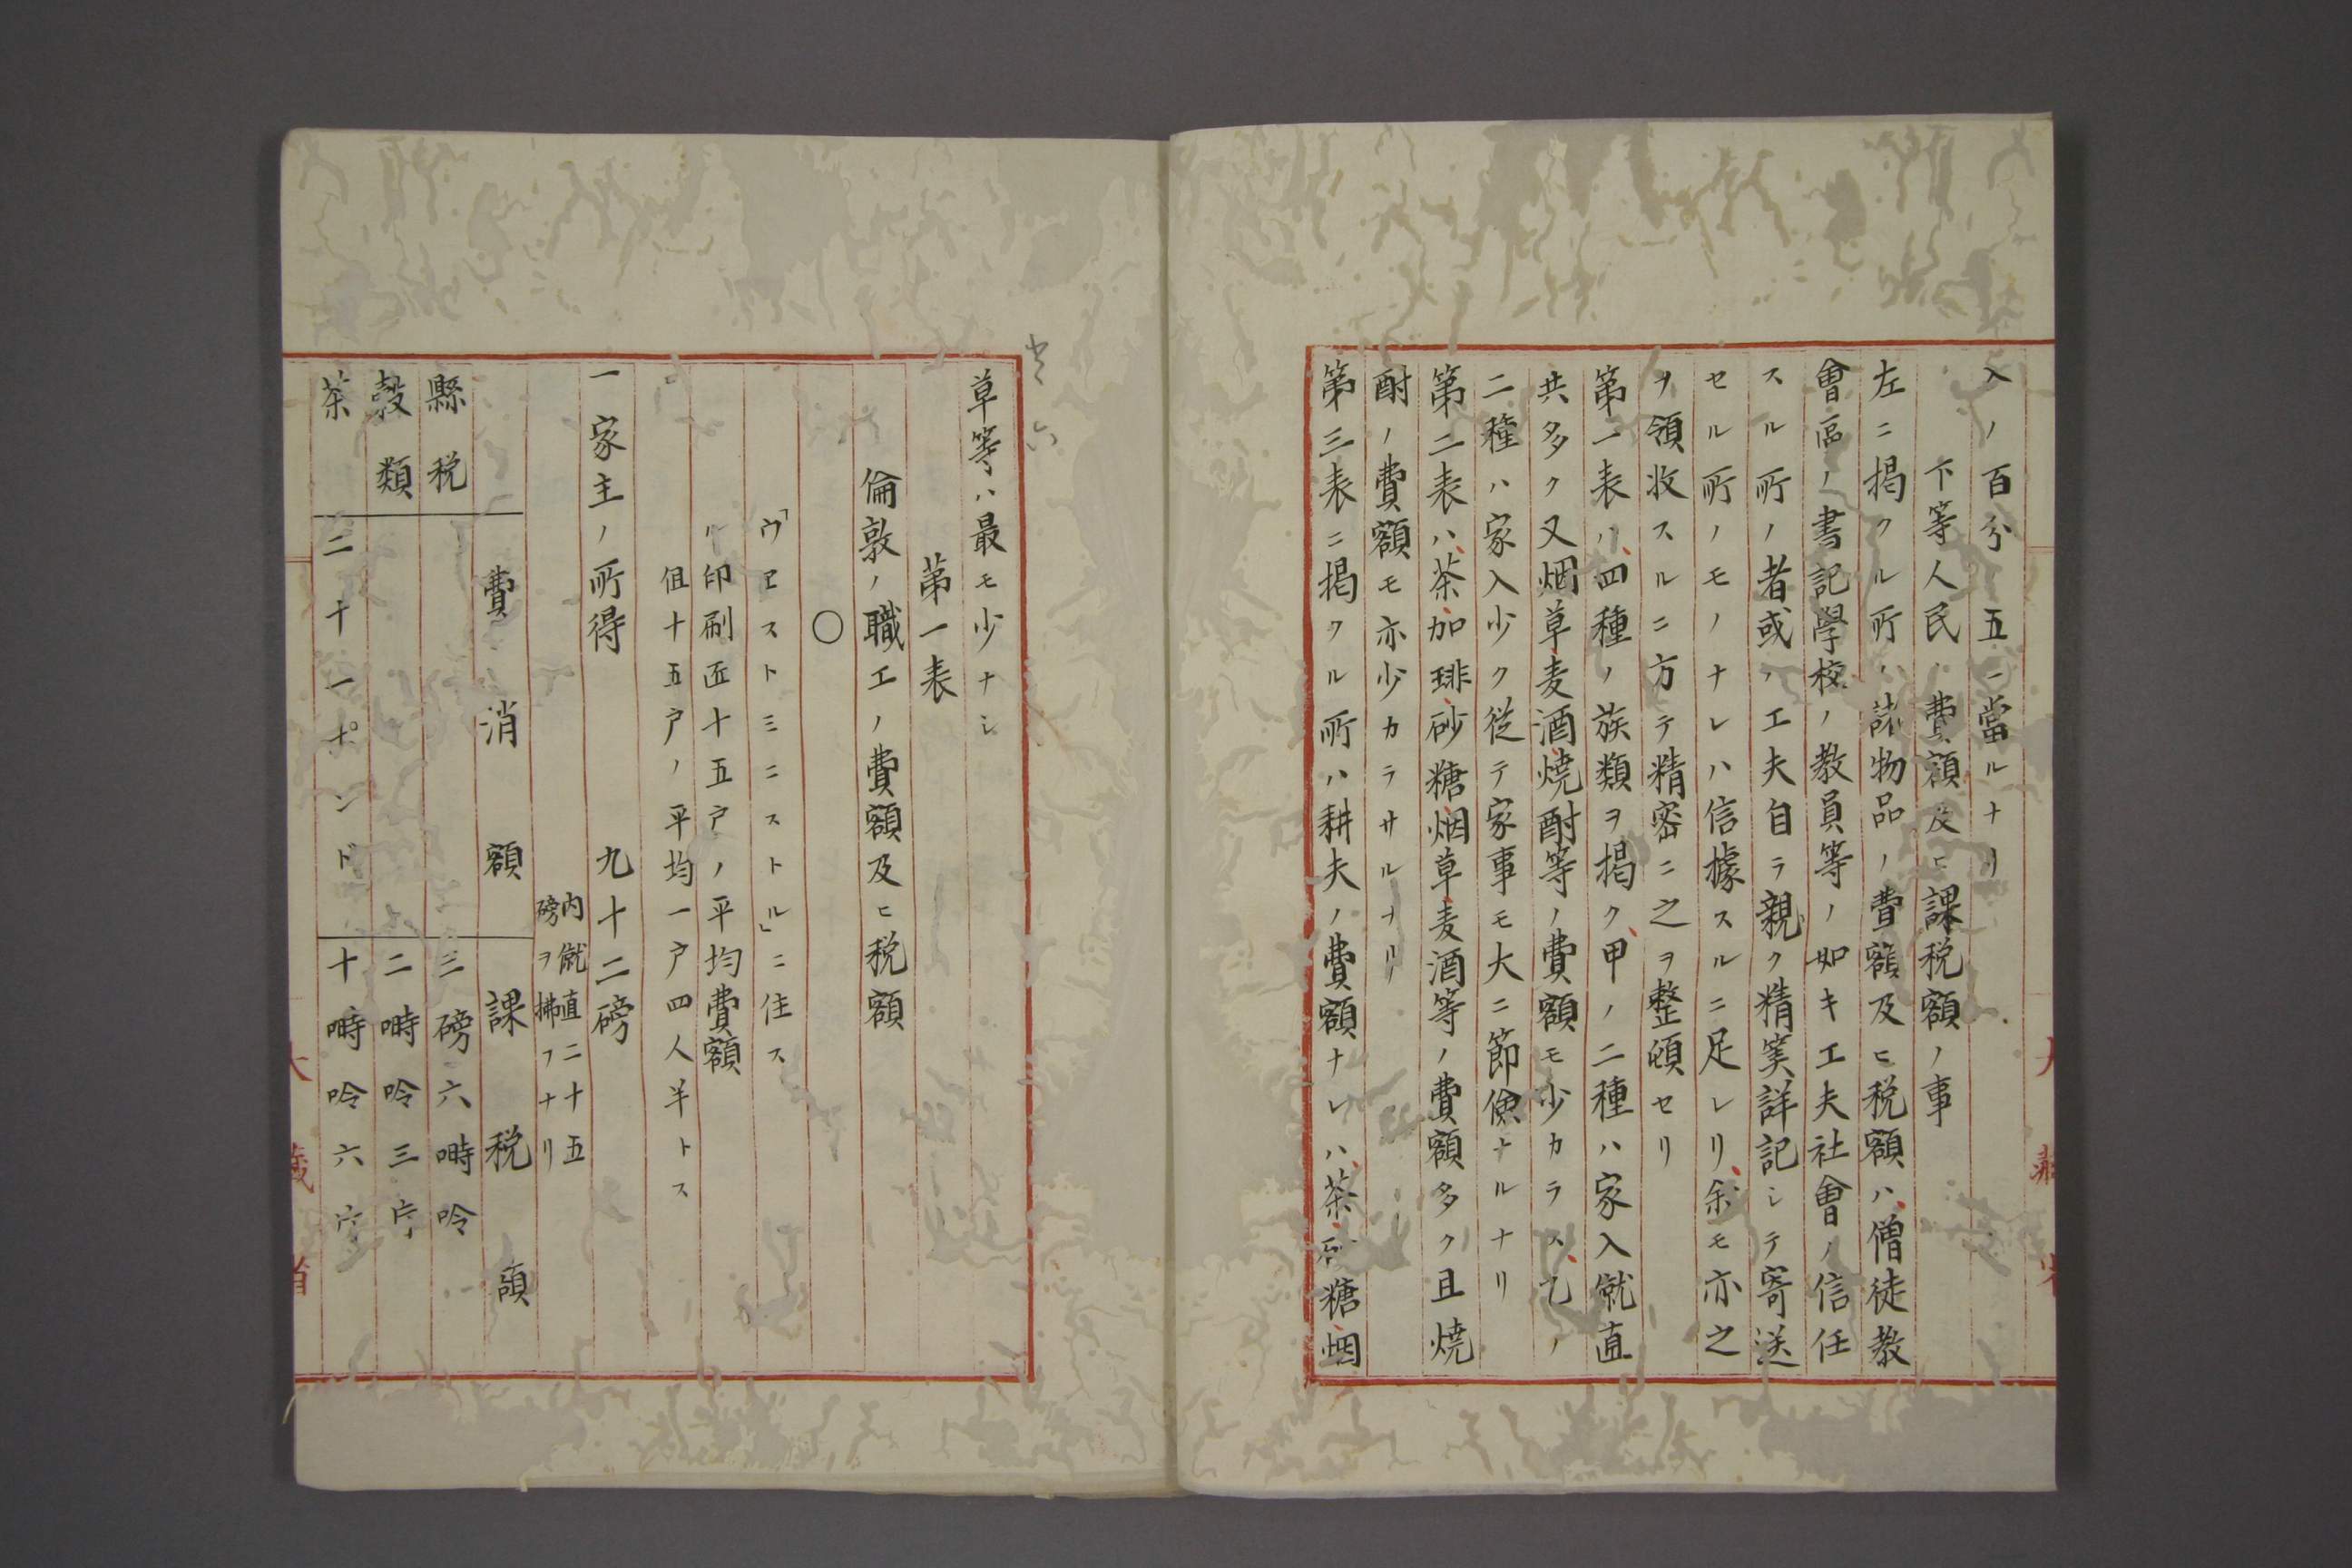 入ノ百分ノ五ニ當ルナリ
下等人民ノ費額及ヒ課税額ノ事
左ニ掲クル所ノ諸物品ノ費額及ヒ税額ハ僧徒教
會區ノ書記學校ノ教員等ノ如キ工夫社會ノ信任
スル所ノ者或ハ工夫自ラ親ク精実詳記シテ寄送
セル所ノモノナレハ信據スルニ足レリ余モ亦之
ヲ領收スルニ方テ精密ニ之ヲ整頓セリ
第一表ハ四種ノ族類ヲ掲ク甲ノ二種ハ家入僦直
共多ク又烟草麦酒焼酎等ノ費額モ少カラス乙ノ
二種ハ家入少ク從テ家事モ大ニ節儉ナルナリ
第二表ハ茶加琲砂糖烟草麦酒等ノ費額多ク且焼
酎ノ費額モ亦少カラサルナリ
第三表ニ掲クル所ハ耕夫ノ費額ナレハ茶砂糖烟
草等ハ最モ少ナシ
第一表
倫敦ノ職工ノ費額及ヒ税額
〇
「ウヱストミニストル」ニ住ス
ル印刷匠十五戸ノ平均費額
但十五戸ノ平均一戸四人半トス
一家主ノ所得 九十二磅
内僦直二十五
磅ヲ拂フナリ
費消額 課税額
縣税 三磅六時呤
穀類 二時呤三片
茶 二十一ポンド 十時呤六片
大藏省